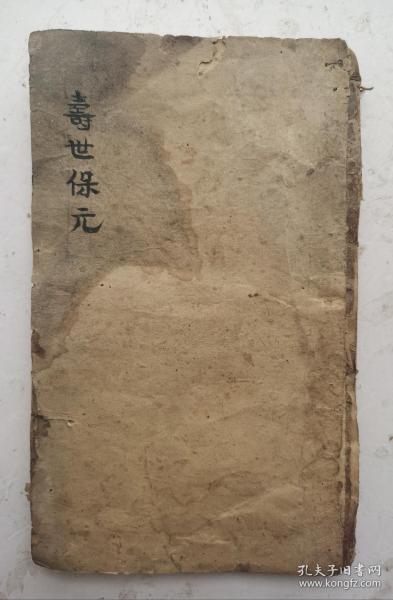 壽世保元
孔夫子旧书网
www.kongfz.com